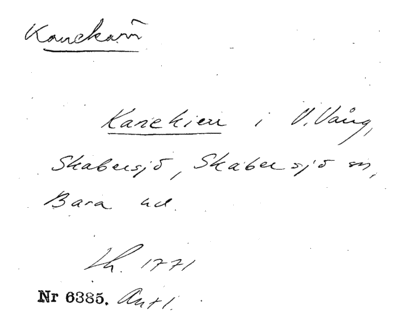 Kanekärr
Kanekierr i V. Vång,
Skabersjö, Skabersjö sn,
Bara hd.
Lh. 1771
Nr 6385. Ant1.